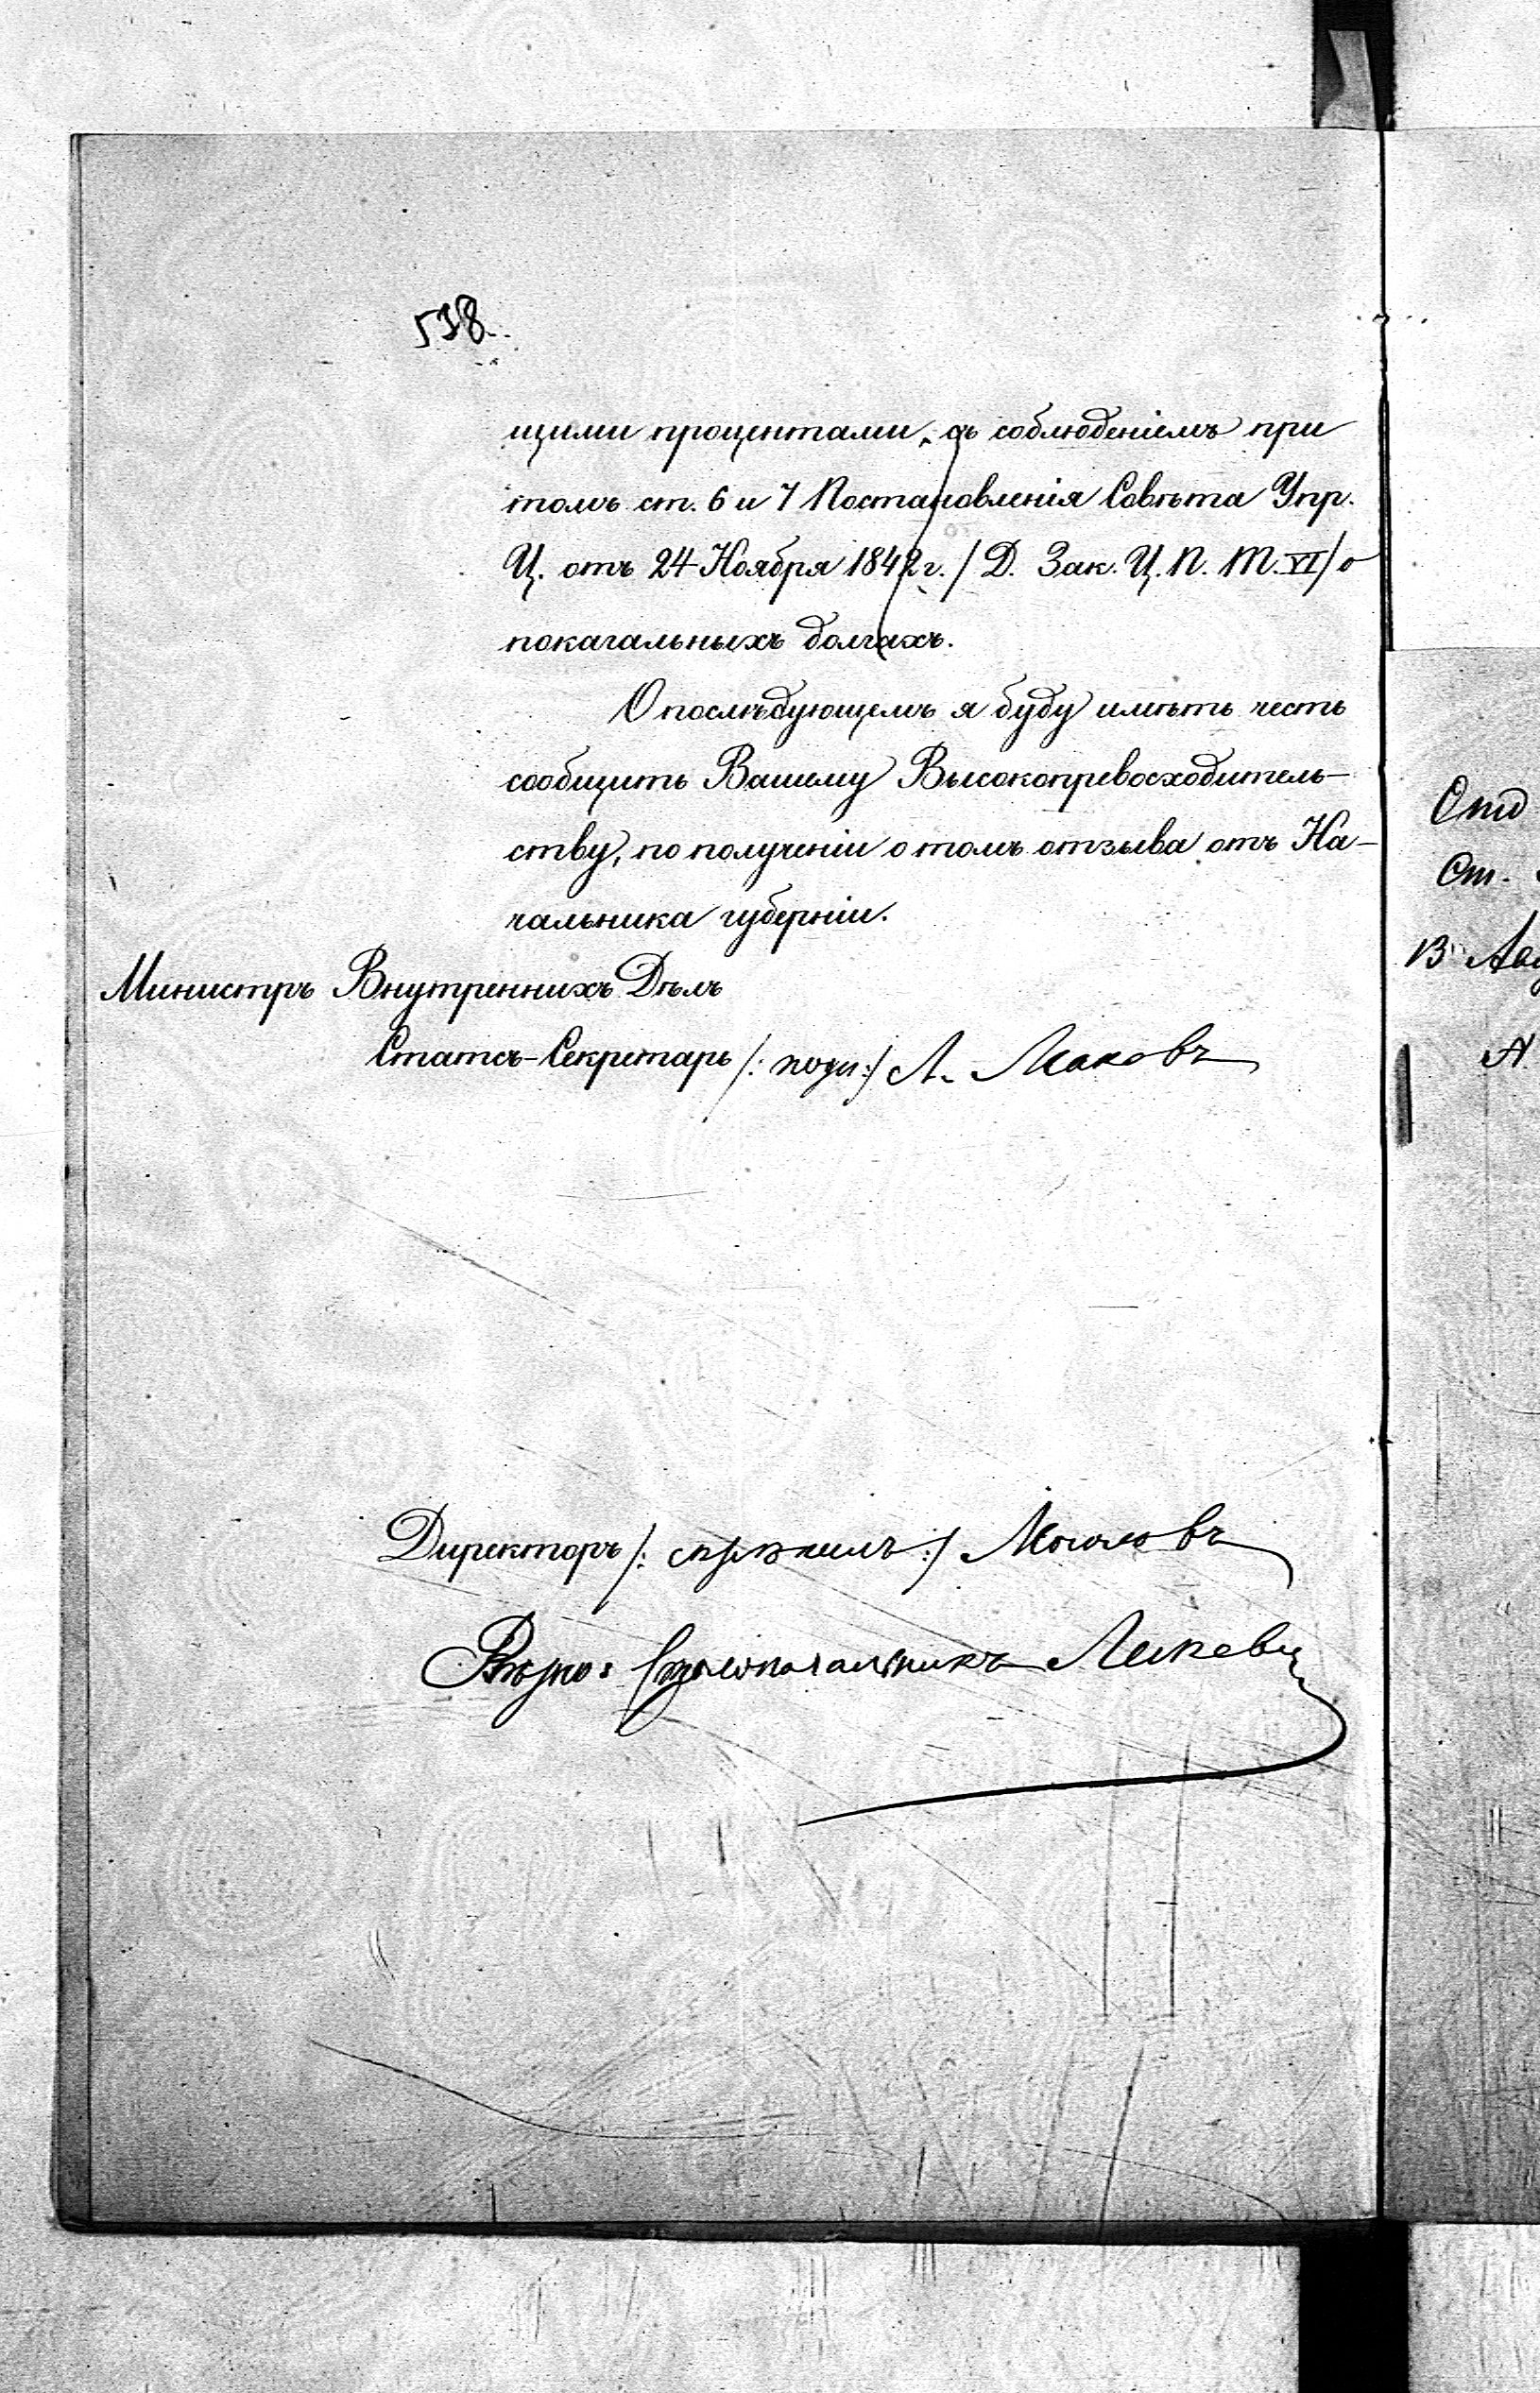 538
щими процентами, съ соблюденіемъ при
томъ ст. 6 и 7 Постановленія Совѣта Упр.
Ц. отъ 24 Ноября 1842 г. /Д. Зак. Ц. П. Т. VI/ о
покагальныхъ долгахъ.
О послѣдующемъ я буду имѣть честь
сообщить Вашему Высокопревосходитель-
ству, по полученіи о томъ отзыва отъ На-
чальника губерніи.
Министръ Внутреннихъ Дѣлъ
Статсъ-Секретарь /: подп :/ Л. Маковъ
Директоръ /: скрѣпилъ :/ Мосоловъ
Вѣрно: Столоначальникъ
Отд
От.
13 Авг
А.